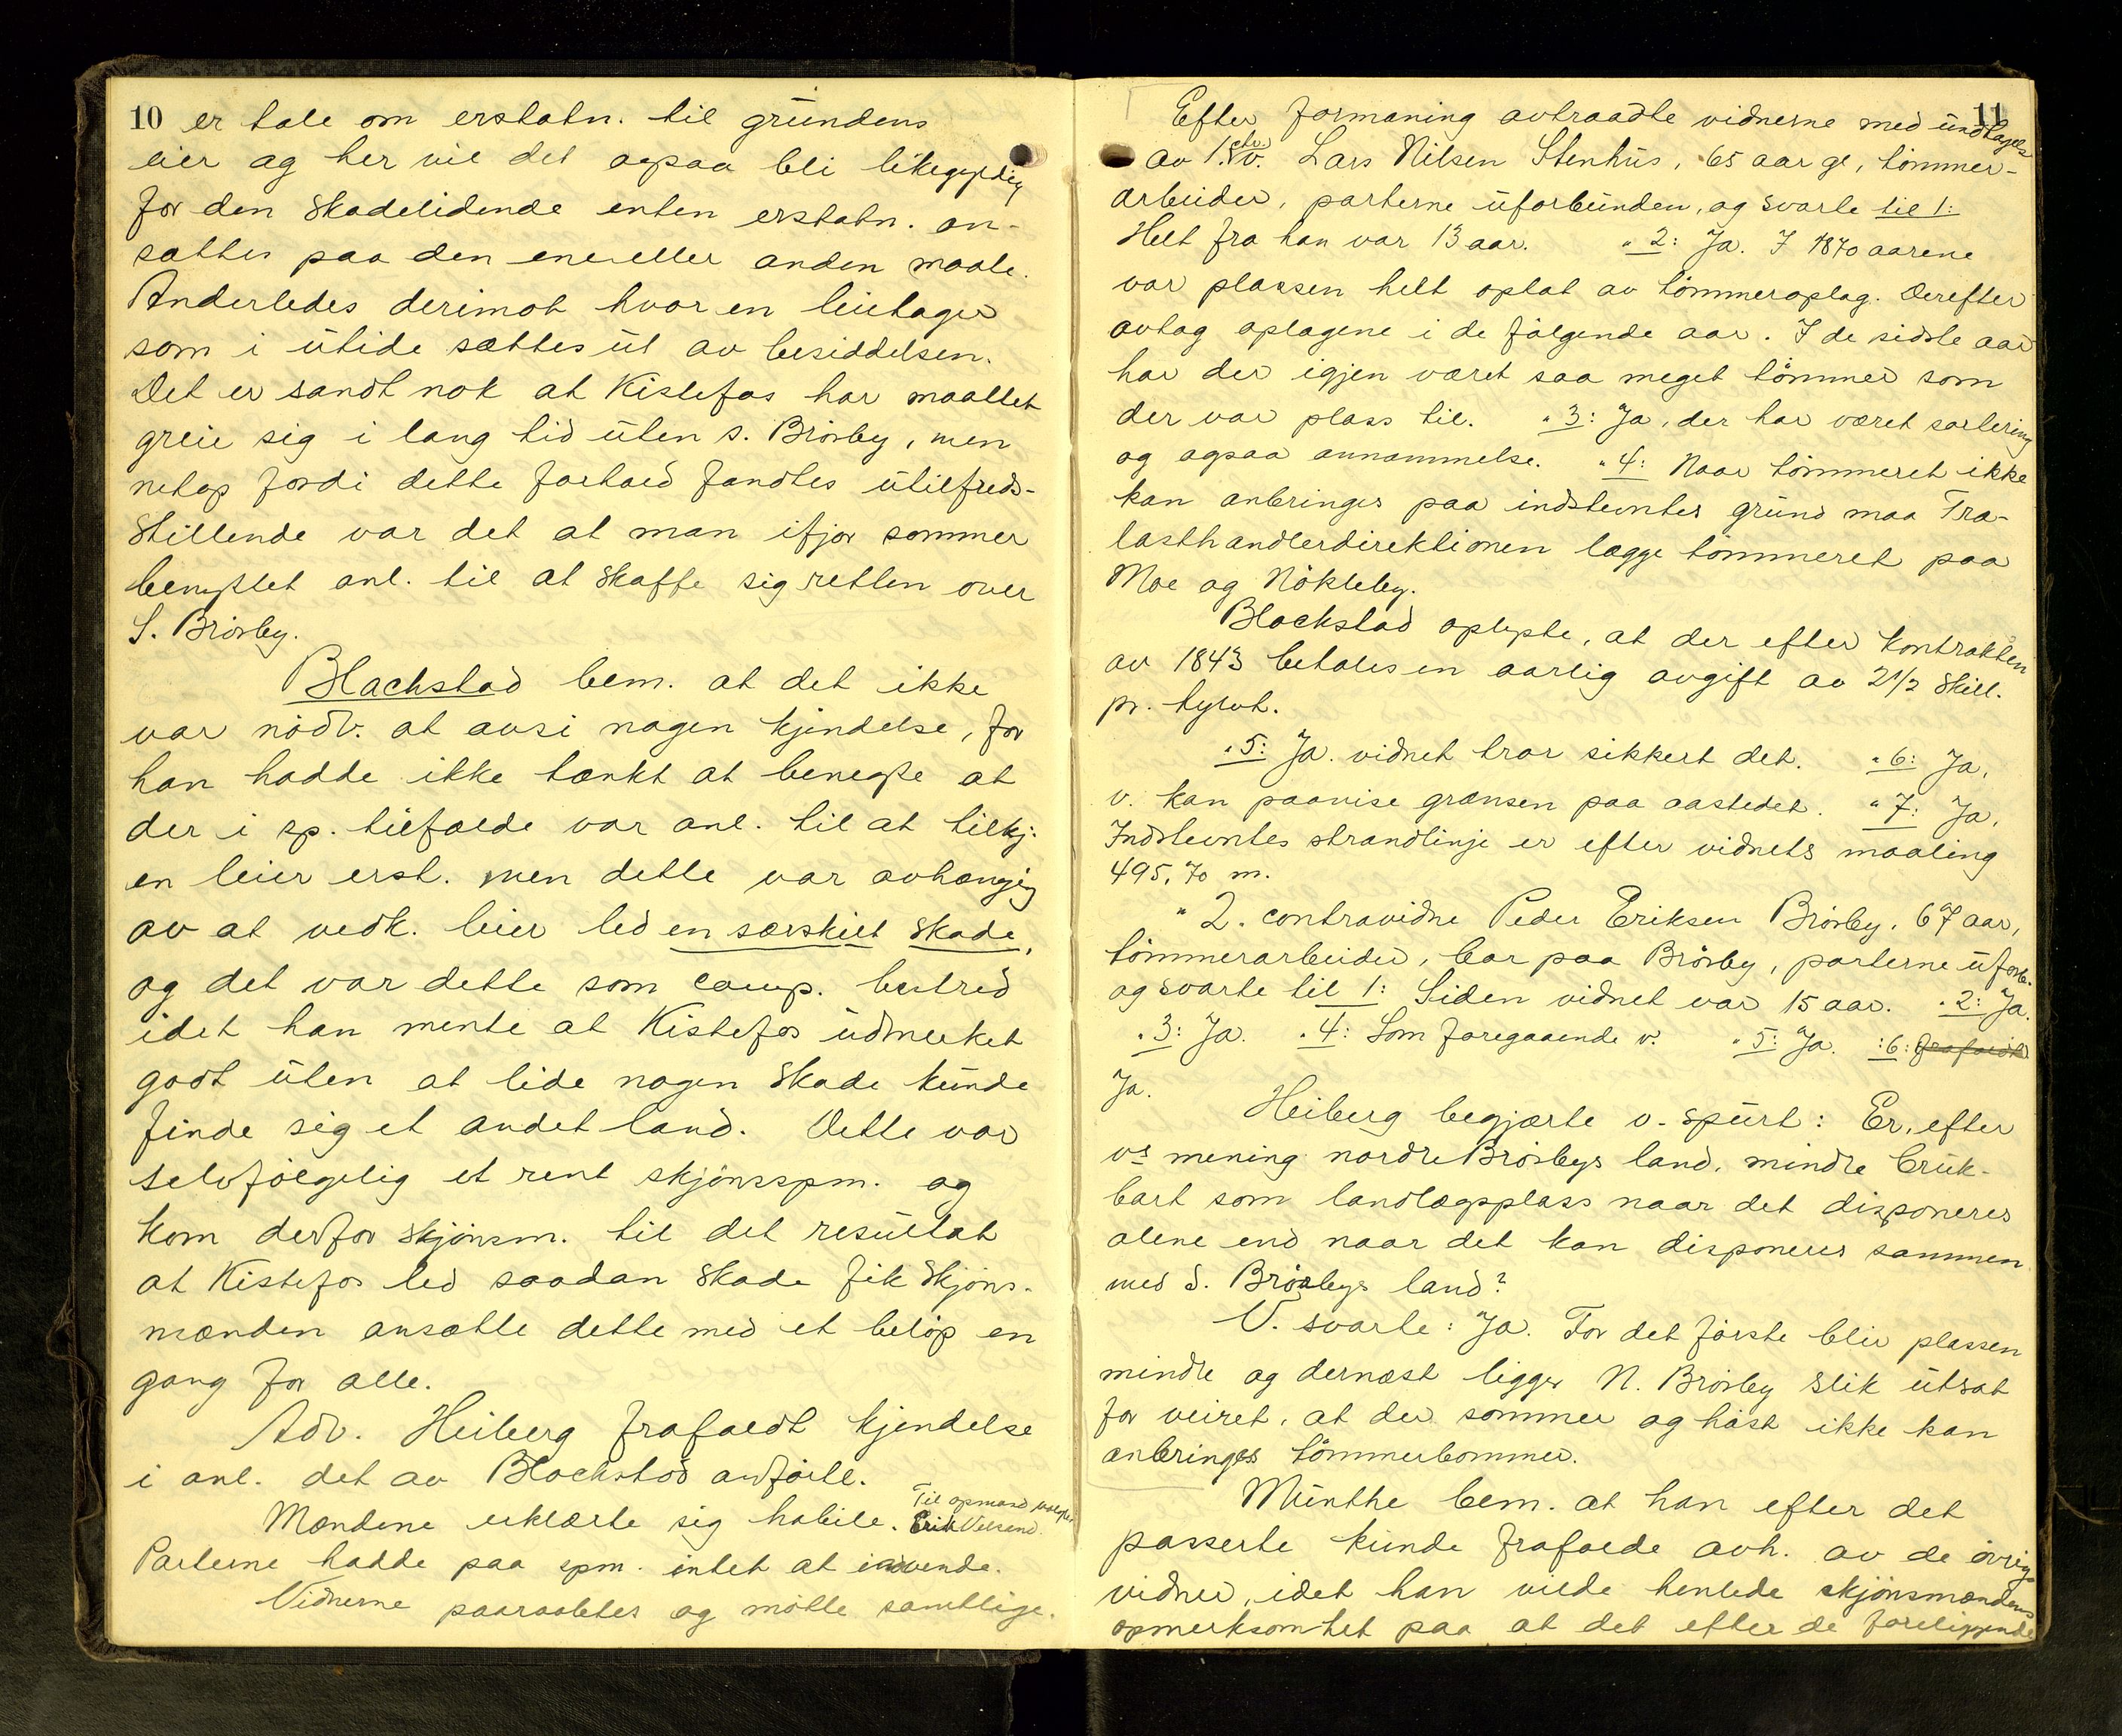 10 er tale om erstatn. til grundens
eier og her vil det ogsaa bli likegyldig
for den skadelidende enten erstatn. an-
sættes paa den ene eller anden maate.
Anderledes derimot hvor en leietager
som i utide sættes ut av besiddelsen.
Det er sandt nok at Kistefos har maattet
greie sig i lang tid uten s. Brørby, men
netop fordi dette forhold fandtes utilfreds-
stillende var det at man ifjor sommer
benyttet anl. til at skaffe sig retten over
S. Brørby.
Blackstad bem. at det ikke
var nödv. at avsi nogen kjendelse, for
han hadde ikke tænkt at benegte at
der i sp. tilfælde var anl. til at tilkj.
en leier erst. men dette var avhængig
av at vedk. leier led en særskilt skade,
og det var dette som comp. bestred
idet han mente at Kistefos udmerket
godt uten at lide nogen skade kunde
finde sig et andet land. Dette var
selvfølgelig et rent skjønsspm. og
kom derfor skjønsm. til det resultat
at Kistefos led saadan skade fik skjøns-
mænden ansætte dette med et beløp en
gang for alle.
Adv. Heiberg frafaldt kjendelse
i anl. det av Blackstad anførte.
Til opmand valgtes
Mændene erklærte sig habile. Erik Velsand.
Parterne hadde paa spm. intet at indvende.
Vidnerne paaraabtes og møtte samtlige.
11
Efter formaning avtraadte vidnerne med undtagelse
av 1. ctr. v. Lars Nilsen Stenhus, 65 aar gl, tömmer-
arbeider, parterne uforbunden, og svarte til 1:
Helt fra han var 13 aar. " 2: Ja. I 1870 aarene
var plassen helt optat av tömmeroplag. Derefter
avtog oplagene i de følgende aar. I de sidste aar
har der igjen været saa meget tömmer som
der var plass til. " 3: Ja, der har været sortering
og ogsaa annammelse. " 4: Naar tömmeret ikke
kan anbringes paa indstevntes grund maa Tra-
lasthandlerdirektionen lægge tömmeret paa
Moe og Nökleby.
Blackstad oplyste, at der efter kontrakten
av 1843 betales en aarlig avgift av 2 1/2 skill.
pr. tylvt.
" 5: Ja. vidnet tror sikkert det. " 6: Ja,
v. kan paavise grænsen paa aastedet. " 7: Ja,
Indstevntes strandlinje er efter vidnets maaling
495,70 m.
" 2. contravidne Peder Eriksen Brørby, 67 aar,
tömmerarbeider, bor paa Brørby, parterne uforb.
og svarte til 1: Siden vidnet var 15 aar. " 2: Ja.
" 3: Ja. " 4: Som foregaaende v. " 5: Ja. " 6: frafaldt
Ja.
Heiberg begjærte v. spurt: Er, efter
vs mening nordre Brørbys land, mindre bruk-
bart som landlægsplass naar det disponeres
alene end naar det kan disponeres sammen
med S. Brørbys land?
V. svarte: Ja. For det første blir plassen
mindre og dernæst ligger N. Brørby slik utsat
for veiret, at der sommer og høst ikke kan
anbringes tömmerbommer.
Munthe bem. at han efter det
passerte kunde frafalde avh. av de øvrige
vidner, idet han vilde henlede skjønsmændens
opmerksomhet paa at det efter de foreliggende